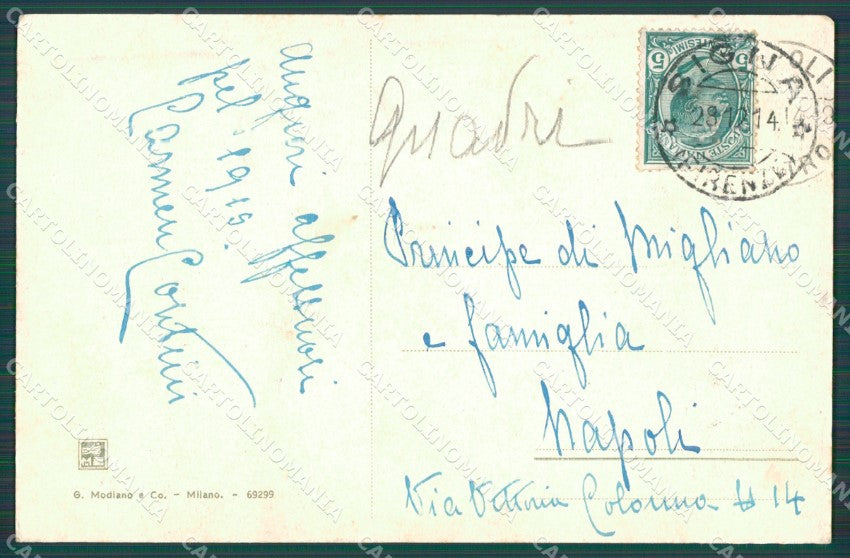 Auguri affettuosi
pel 1915.
Carmen Contini
Quadri
Principe di Migliano
e famiglia
Napoli
Via Vittoria Colonna # 14
CENTESIMI
5 5
POSTE ITALIANE
SIGNA
28.12.14
(FIRENZE)
G. Modiano e Co. - Milano. - 69299
CARTOLINOMANIA